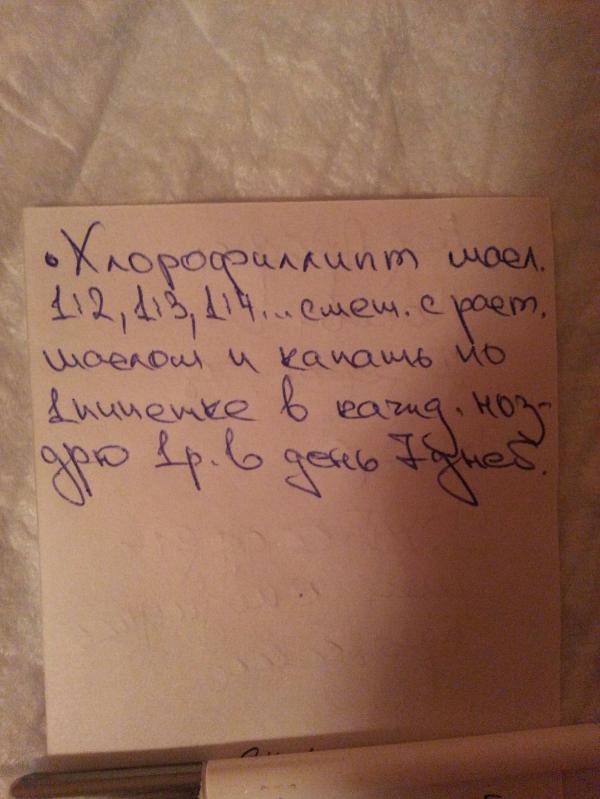 • Хлорофиллипт масл.
1:2, 1:3, 1:4... смеш. с раст.
маслом и капать по
1 пипетке в кажд. ноз-
дрю 1 р. в день 7 дней.